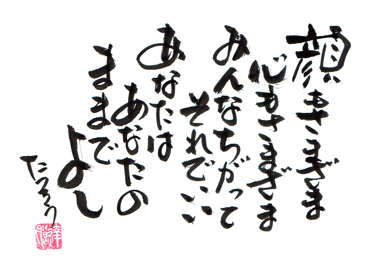 顔もさまざま
心もさまざま
みんなちがって
それでいい
あなたは
あなたの
ままで
よし
たつろう